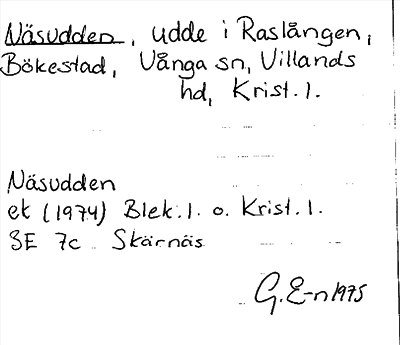 Näsudden, udde i Raslången,
Bökestad, Vånga sn, Villands
hd, Krist.l.
Näsudden
ek (1974) Blek.l. o. Krist.l.
3E 7c Skärnäs
G.E-n 1975